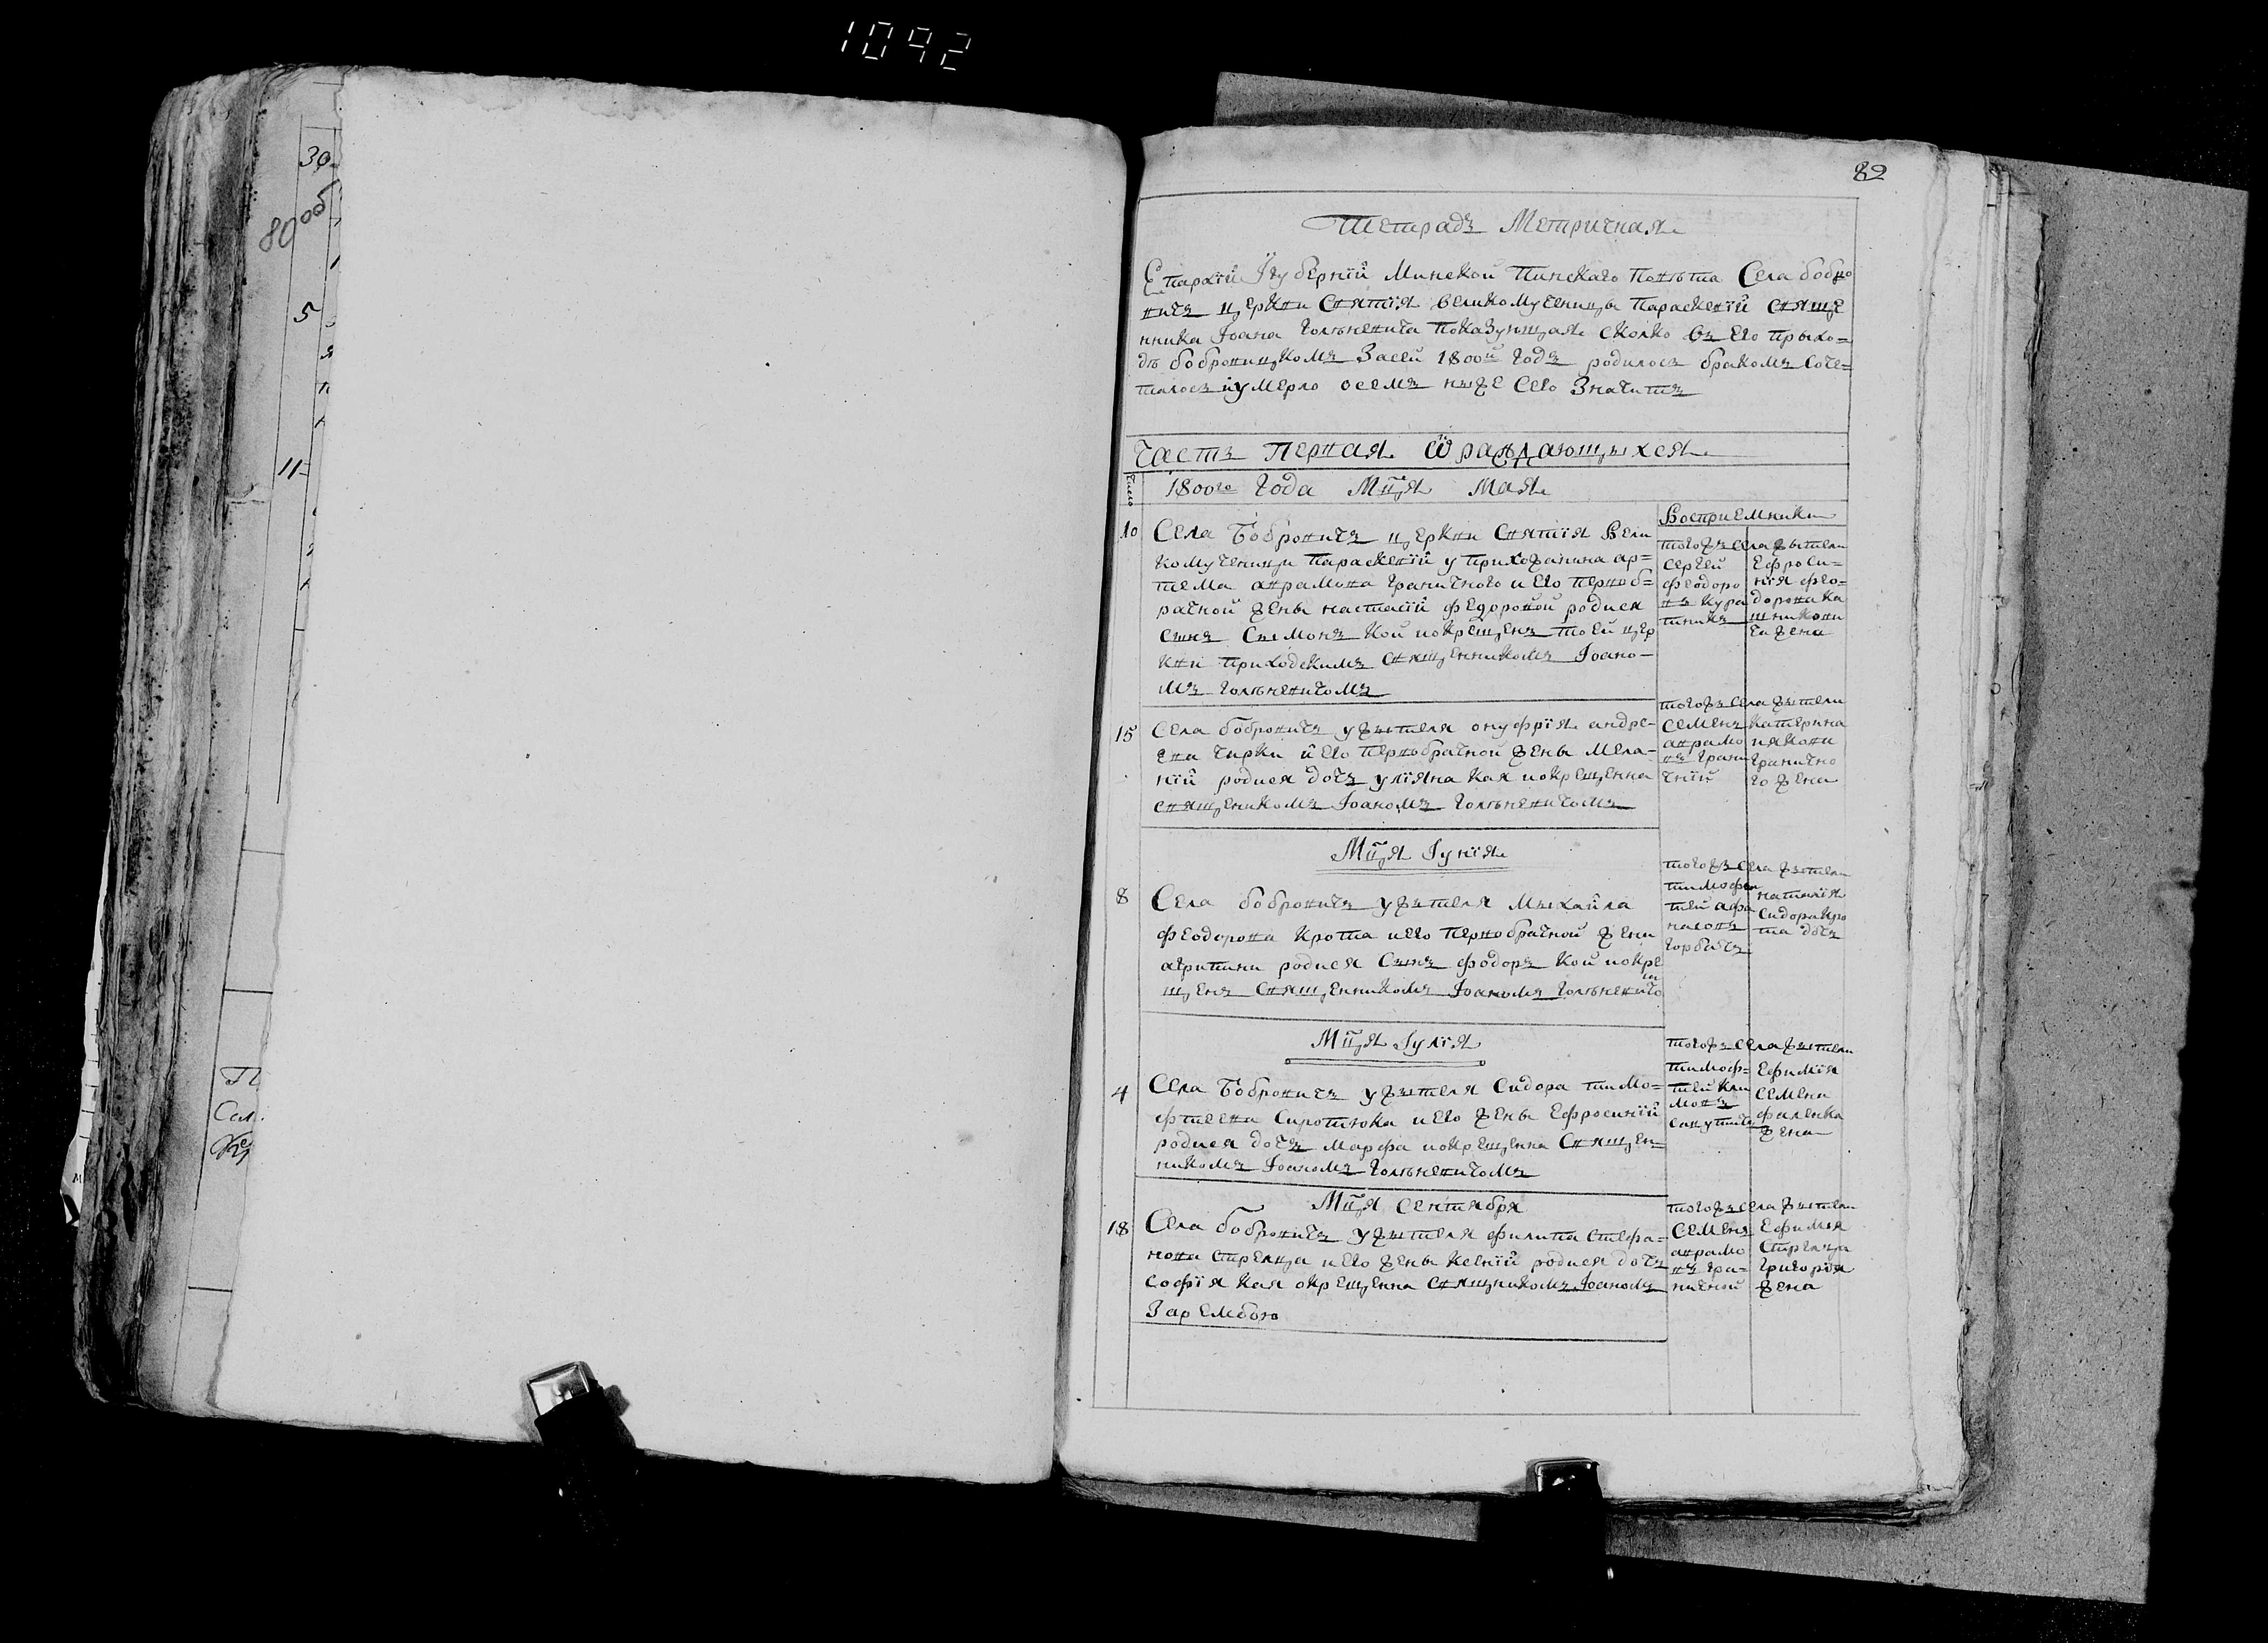 1092
30
80 об
5
11
82
Тетрадъ Метричная
Епархїи Їгубернїи Минской Пинскаго Повѣта Села бобро
вичъ церкви Святїя великомученицы Параскевїи Свяще
нника ЇоанаГолѣневича Показующая сколко въ Его прыхо=
дѣ бобровицкомъ Засей 1800й Годъ родилосъ бракомъ Соче=
талосъ иумерло осемъ ныже Сего Значитъ
Частъ Первая Ѿ раждающыхся
Число
1800го Года Мцъя Мая
Восприемники
10
Села Бобровичъ церкви Святїя Вели
комученицы Параскевїи у Прихожанина ар=
тема аврамова Граничного и Его Первоб=
рачной жены настасїи федоровой родися
сынъ Сымонъ Кой иокрещенъ тоей цер
кви Приходскимъ священникомъ Їоано-
мъ Голѣневичомъ
тогожъ села жытели
Сергей
феодоро
въ Кура
тникъ
Ефроси=
нїя фео=
дорова Ка
шникови
ча жена
15
Села бобровичъ ужытеля онуфрїя андре-
ева Чирки иЕго Первобрачной жены Мела-
нїи родися дочъ улїяна Кая иокрещенна
священикомъ Їоаномъ Голѣневичомъ
тогожъ села жытели
Семенъ
аврамо
въ Грани
чнїй
Катерина
иякови
Гранично
го жена
Мцъя Їунїя
8
Села бобровичъ ужытеля Мыхайла
феодорова Крота иЕго Первобрачной жени
агрипини родися Сынъ фодоръ Кой иокре
щенъ Священникомъ Їоаномъ Голѣневичо
м
тогожъ села жытели
тимофе
тей афа
насовъ
горбачъ
наталїя
Сидора Кро
та дочъ
Мцъя Їулїя
4
Села Бобровичъ ужытеля Сидора тимо=
фтеева Сиротюка иЕго жены Ефросинїи
родися дочъ Марфа иокрещенна Священ=
никомъ Їоаномъ Голѣневичомъ
тогожъ села жытели
тимоф=
тей Кли
мовъ
Ефимїя
Семена
фаленка
жена
Мцъя Сентября
18
Села бобровичъ ужытеля филипа Стефа-
нова Стрелца иЕго жены Ксенїи родися дочъ
Софїя Кая окрещенна Священикомъ Їоаномъ
Зарембою
тогожъ села жытели
Семенъ
аврамо
въ Гра-
ничной
Ефимїя
Стрелца
Григорїя
жена